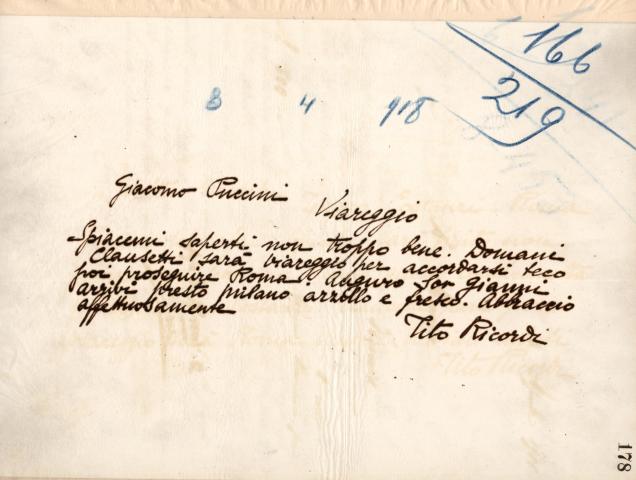 166
219
3 4 918
Giacomo Puccini
Viareggio
Spiacemi saperti non troppo bene. Domani
Clausetti sarà viareggio per accordarsi teco
poi proseguire Roma. Auguro Sor Gianni
arrivi presto milano arzillo e fresco. Abbraccio
affettuosamente
Tito Ricordi
178